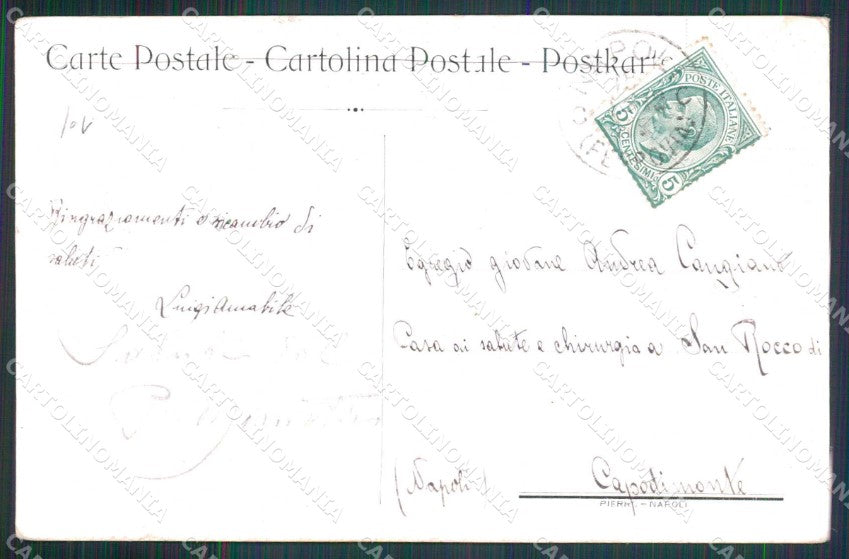 Carte Postale - Cartolina Postale - Postkarte
POSTE ITALIANE
5 CENTESIMI 5
Ringraziamenti e ricambio di
saluti
Luigi Amabile
Egregio giovane Andrea Cangiano
Casa di salute e chirurgia a San Rocco di
(Napoli) Capodimonte
PIERRO - NAPOLI
CARTOLINOMANIA